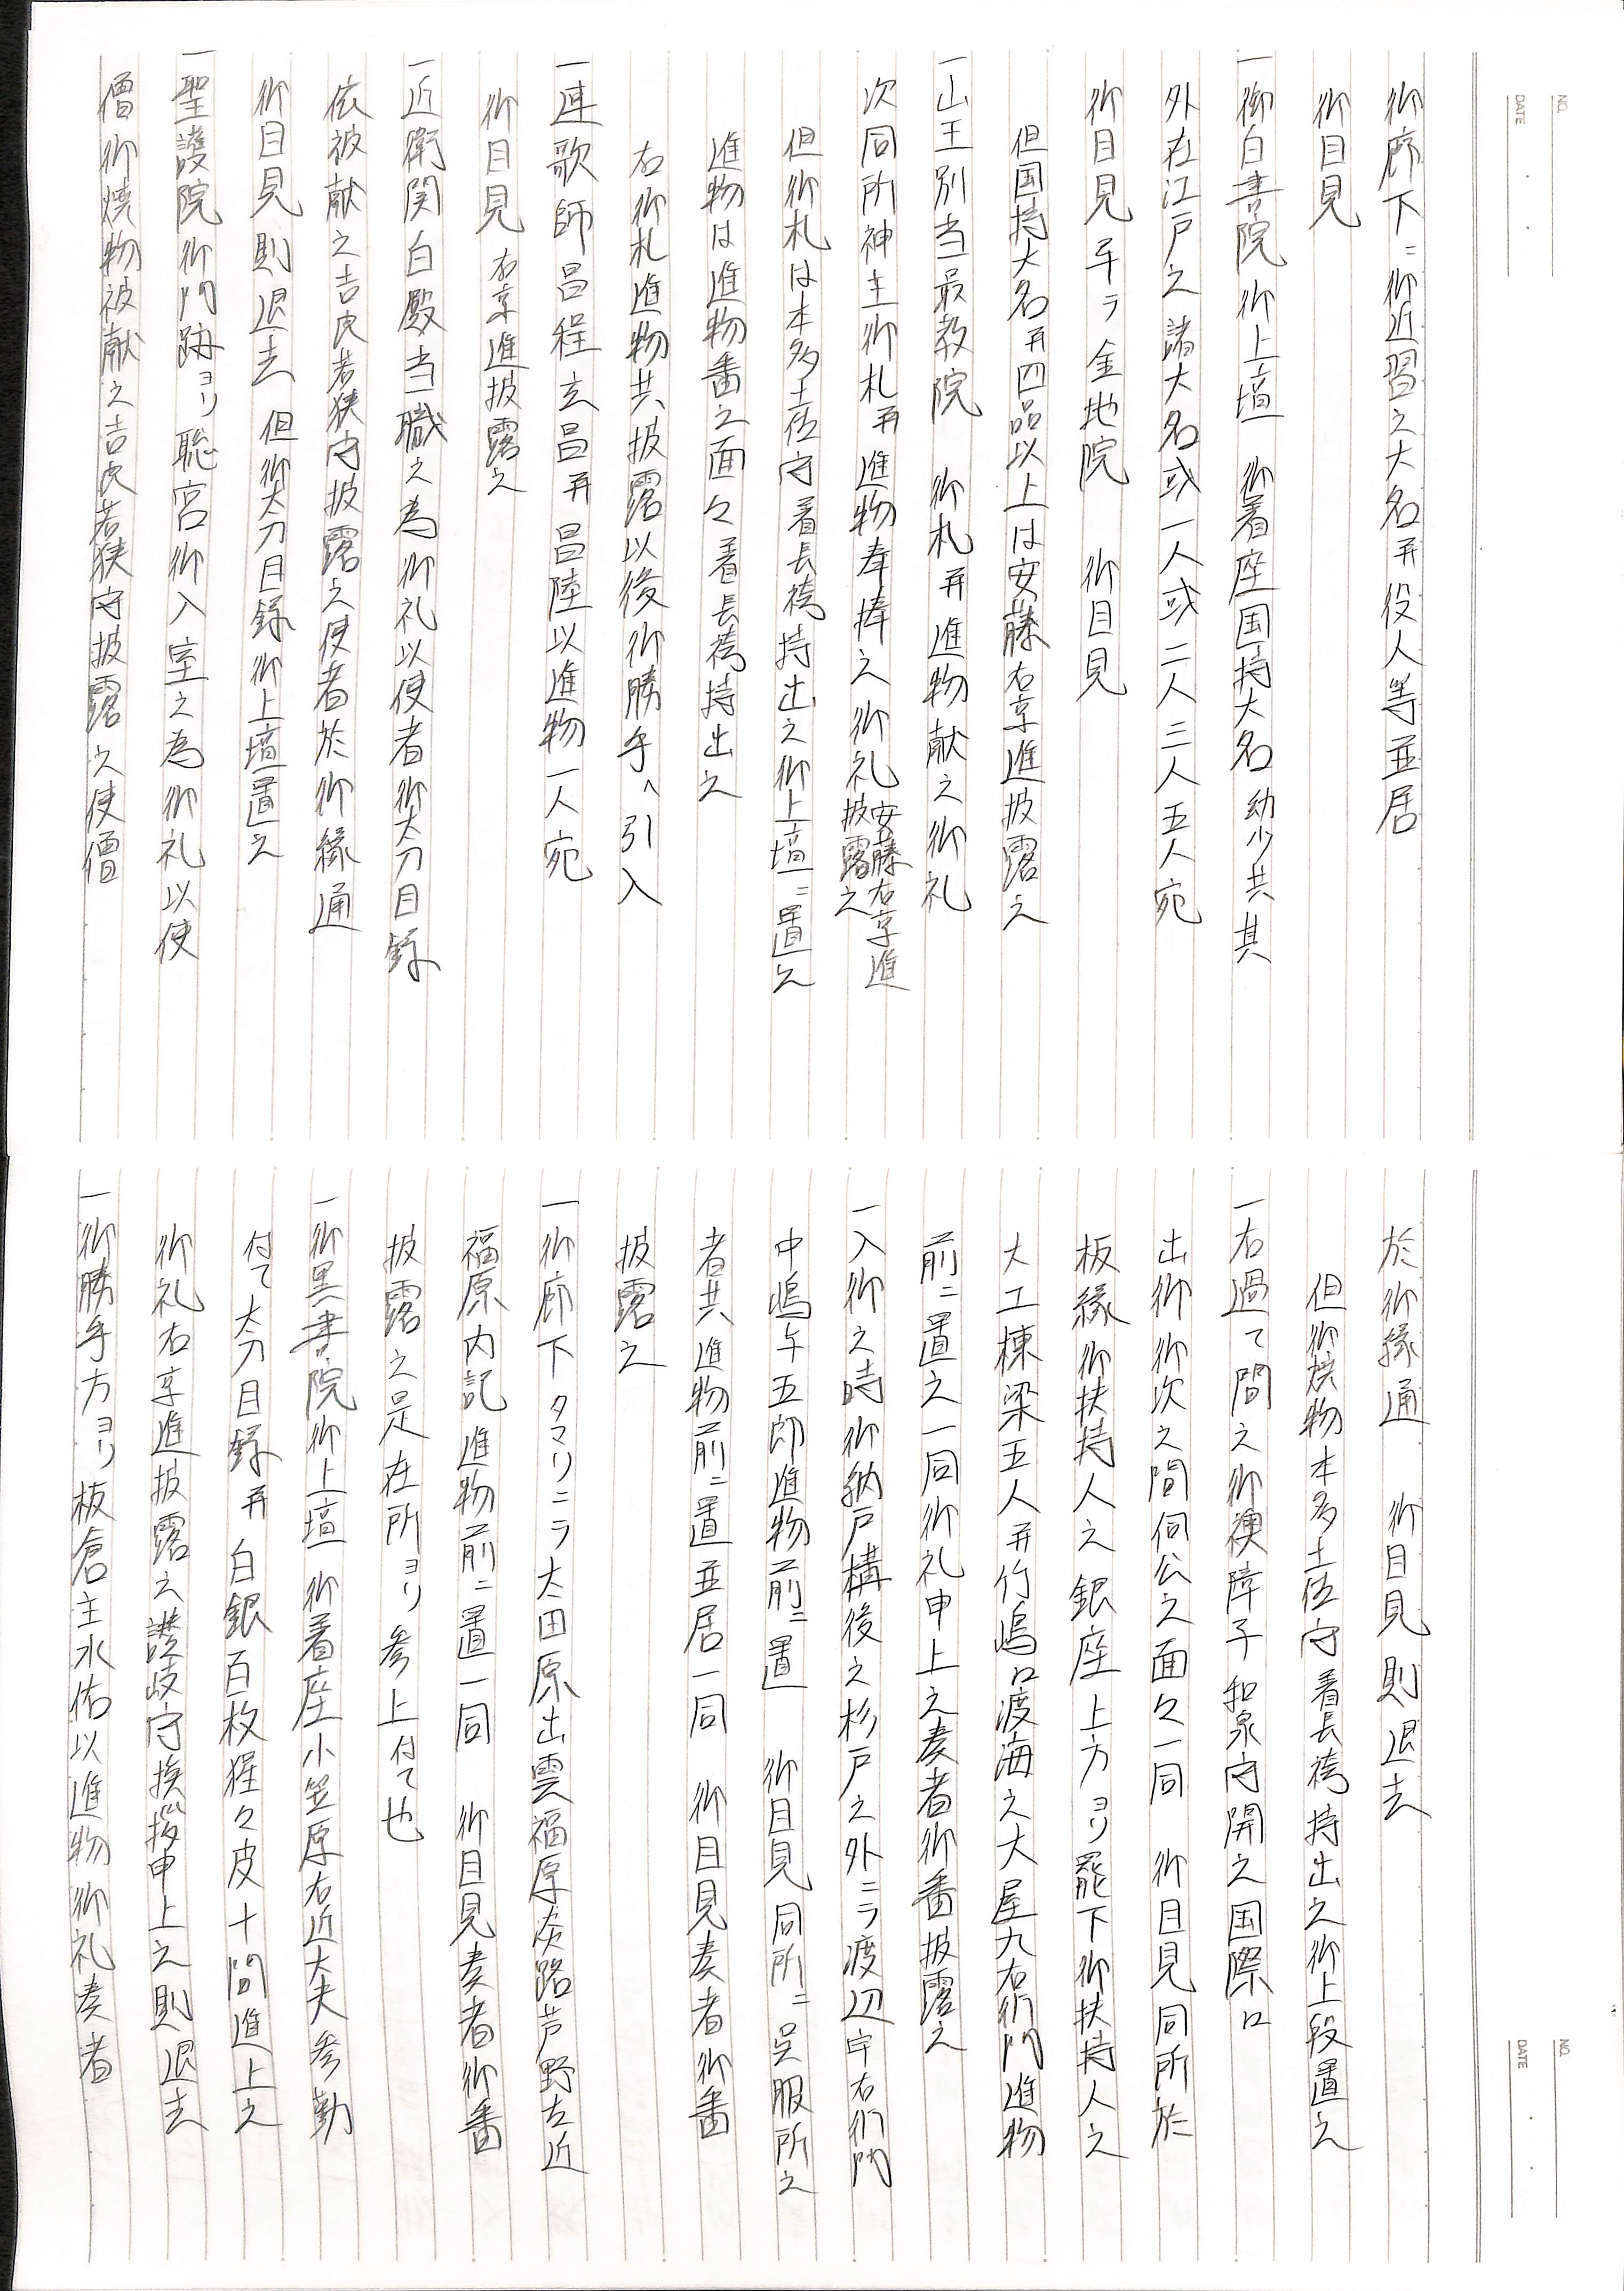 NO.
DATE
御廊下ニ御近習之大名并役人等並居
御目見
一御白書院御上壇 御着座国持大名幼少共其
外在江戸之諸大名或一人或二人三人五人宛
御目見 平ラ金地院 御目見
但国持大名并四品以上は安藤右京進披露之
一山王別当最教院 御札并進物献之御礼
次同所神主御札并進物奉捧之御礼安藤右京進披露之
但御札は本多土佐守着長袴持出之御上壇ニ置之
進物は進物番之面々着長袴持出之
右御札進物共披露以後御勝手へ引入
一連歌師昌程玄昌并昌陸以進物一人宛
御目見 右京進披露之
一近衛関白殿当職之為御礼以使者御太刀目録
依被献之吉良若狭守披露之使者於御縁通
御目見則退去 但御太刀目録御上壇置之
一聖護院御門跡ヨリ聡宮御入室之為御礼以使
僧御焼物被献之吉良若狭守披露之使僧
NO.
DATE
於御縁通 御目見則退去
但御焼物本多土佐守着長袴持出之御上段置之
一右過て間之御襖障子和泉守開之国際口
出御御次之間伺公之面々一同 御目見同所於
板縁御扶持人之銀座上方ヨリ罷下御扶持人之
大工棟梁五人并竹嶋口渡海之大屋九右衛門進物
前ニ置之一同御礼申上之奏者御番披露之
一入御之時御納戸構後之杉戸之外ニラ渡辺宇右衛門
中嶋午五郎進物前ニ置 御目見同所ニ呉服所之
者共進物前ニ置並居一同 御目見奏者御番
披露之
一御廊下タマリニラ太田原出雲福原淡路芦野左近
福原内記進物前ニ置一同 御目見奏者御番
披露之是在所ヨリ参上付て也
一御黒書院御上壇 御着座小笠原右近大夫参勤
付て太刀目録并白銀百枚猩々皮十間進上之
御礼右京進披露之讃岐守挨拶申上之則退去
一御勝手方ヨリ板倉主水佑以進物御礼奏者